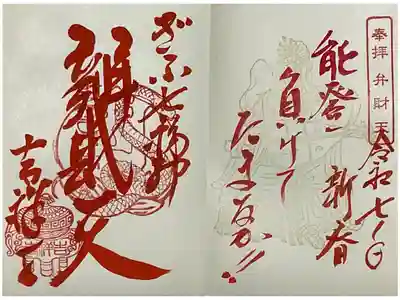 奉拝弁財天
令和七
新春
能登
負けて
たまるか!!
ぎふ七福神
辯財天
吉祥寺